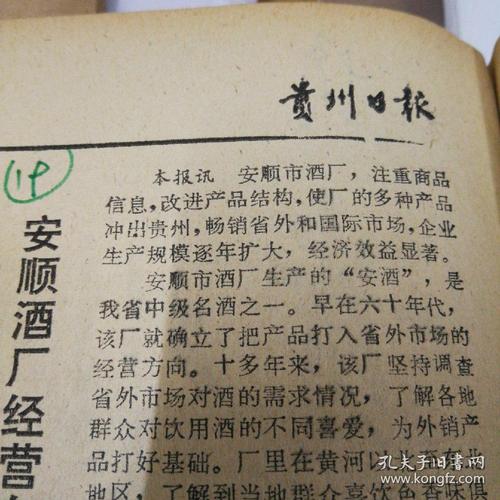 贵州日报
19
安顺酒厂经营
本报讯 安顺市酒厂，注重商品
信息，改进产品结构，使厂的多种产品
冲出贵州，畅销省外和国际市场，企业
生产规模逐年扩大，经济效益显著。
安顺市酒厂生产的“安酒”，是
我省中级名酒之一。早在六十年代，
该厂就确立了把产品打入省外市场的
经营方向。十多年来，该厂坚持调查
省外市场对酒的需求情况，了解各地
群众对饮用酒的不同喜爱，为外销产
品打好基础。厂里在黄河以
地区，了解到当地群众喜饮
孔夫子旧书网